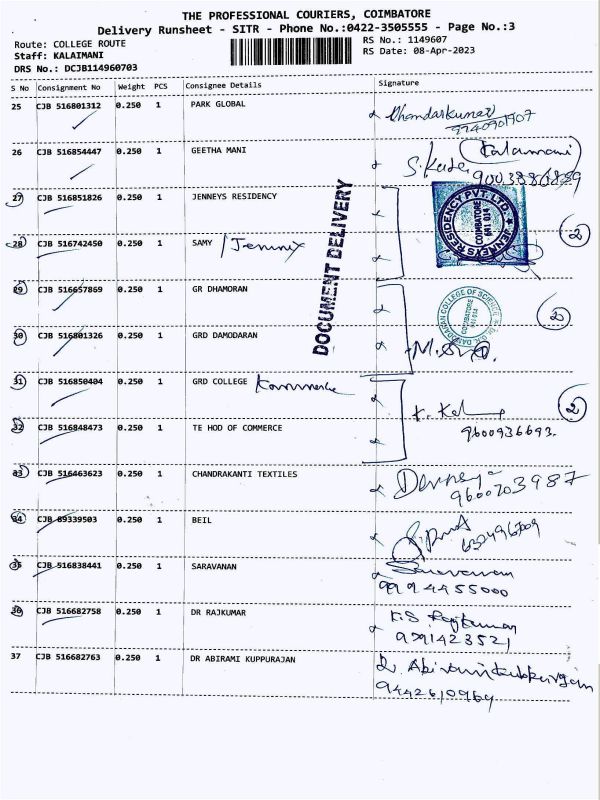 THE PROFESSIONAL COURIERS, COIMBATORE
Delivery Runsheet - SITR - Phone No.:0422-3505555 - Page No.:3
Route: COLLEGE ROUTE RS No.: 1149607
Staff: KALAIMANI RS Date: 08-Apr-2023
DRS No.: DCJB114960703
S No Consignment No Weight PCS Consignee Details Signature
25 CJB 516801312 0.250 1 PARK GLOBAL Dhandarkumar
9740901907
26 CJB 516854447 0.250 1 GEETHA MANI (Kalaimani)
9003886889
27 CJB 516851826 0.250 1 JENNEYS RESIDENCY
JENNEYS RESIDENCY PVT. LTD. COIMBATORE 641 014
2
28 CJB 516742450 0.250 1 SAMY
DOCUMENT DELIVERY
29 CJB 516657869 0.250 1 GR DHAMORAN
COLLEGE OF SCIENCE COIMBATORE 641 014
2
30 CJB 516801326 0.250 1 GRD DAMODARAN
31 CJB 516850404 0.250 1 GRD COLLEGE
2
32 CJB 516848473 0.250 1 TE HOD OF COMMERCE
9600936693.
33 CJB 516463623 0.250 1 CHANDRAKANTI TEXTILES
9600703987
34 CJB 89339503 0.250 1 BEIL
35 CJB 516838441 0.250 1 SARAVANAN Saravanan
9994455000
36 CJB 516682758 0.250 1 DR RAJKUMAR K.S Rajkumar
9791423521
37 CJB 516682763 0.250 1 DR ABIRAMI KUPPURAJAN Dr. Abirami Kuppurajan
9442610969